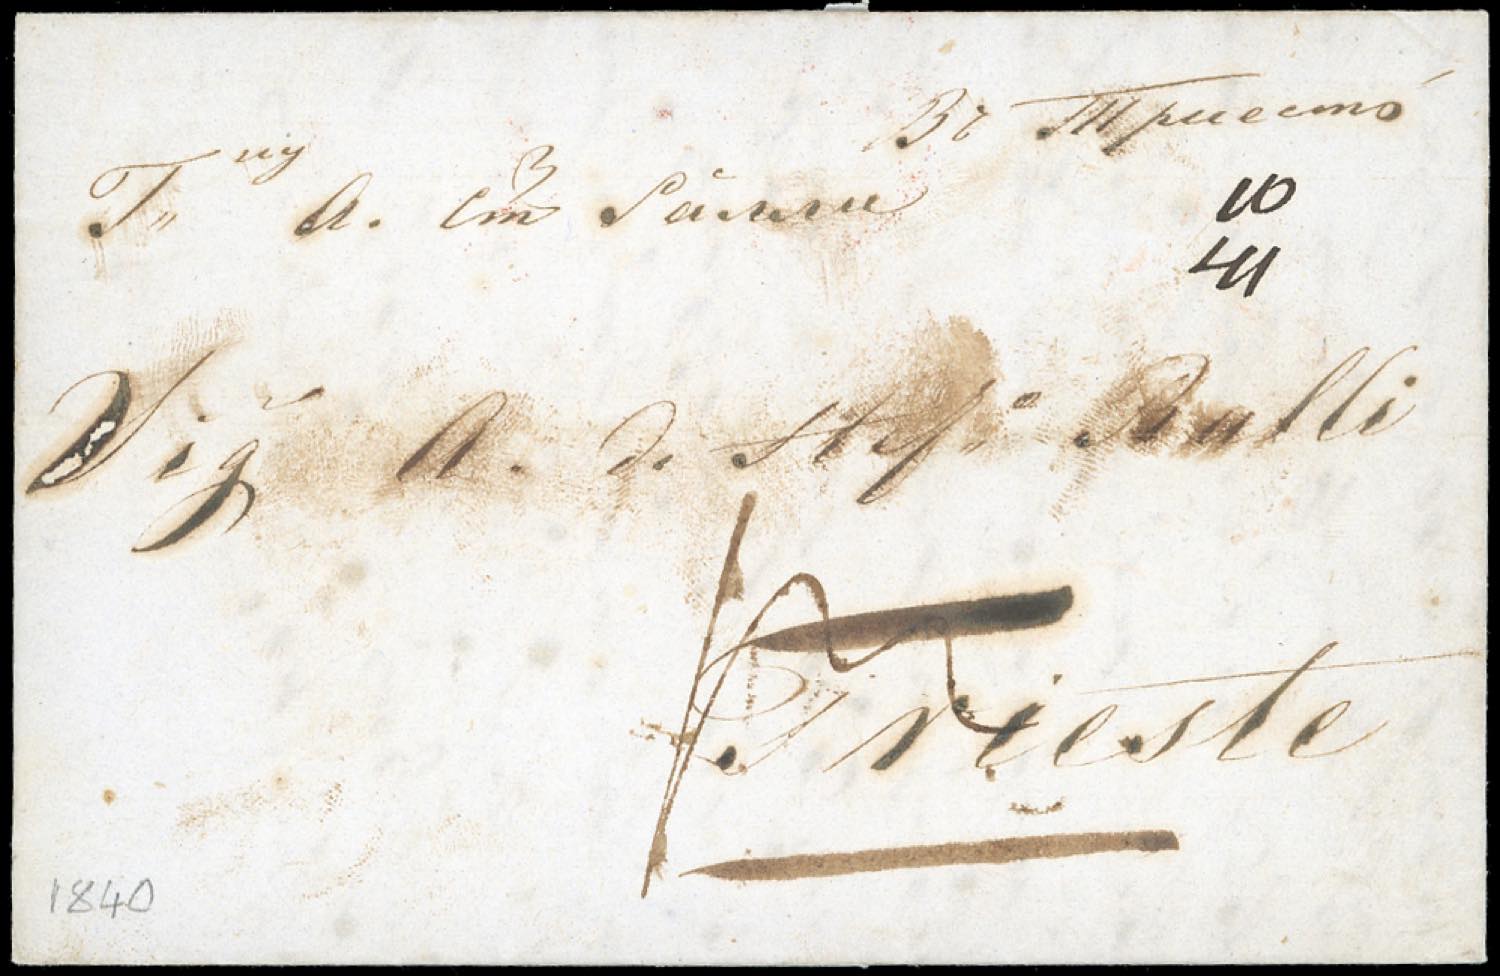 Въ Триестъ
Г,,ну А. Ст. Ралли
10
41
Sigr A. d. Stefo Ralli
Trieste
1840